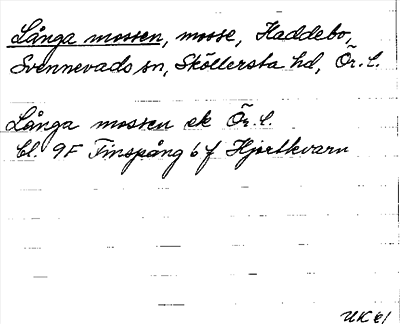 Långa mossen, mosse, Haddebo,
Svennevads sn, Sköllersta hd, Ör. l.
Långa mossen ek Ör. l.
bl. 9F Finspång 6 f Hjortkvarn
UK 61